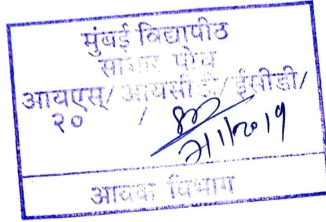 मुंबई विद्यापीठ
सादर पोच
आयएस/ आयसीडी/ ईसीडी/
२० /
2/1/2019
आवक विभाग